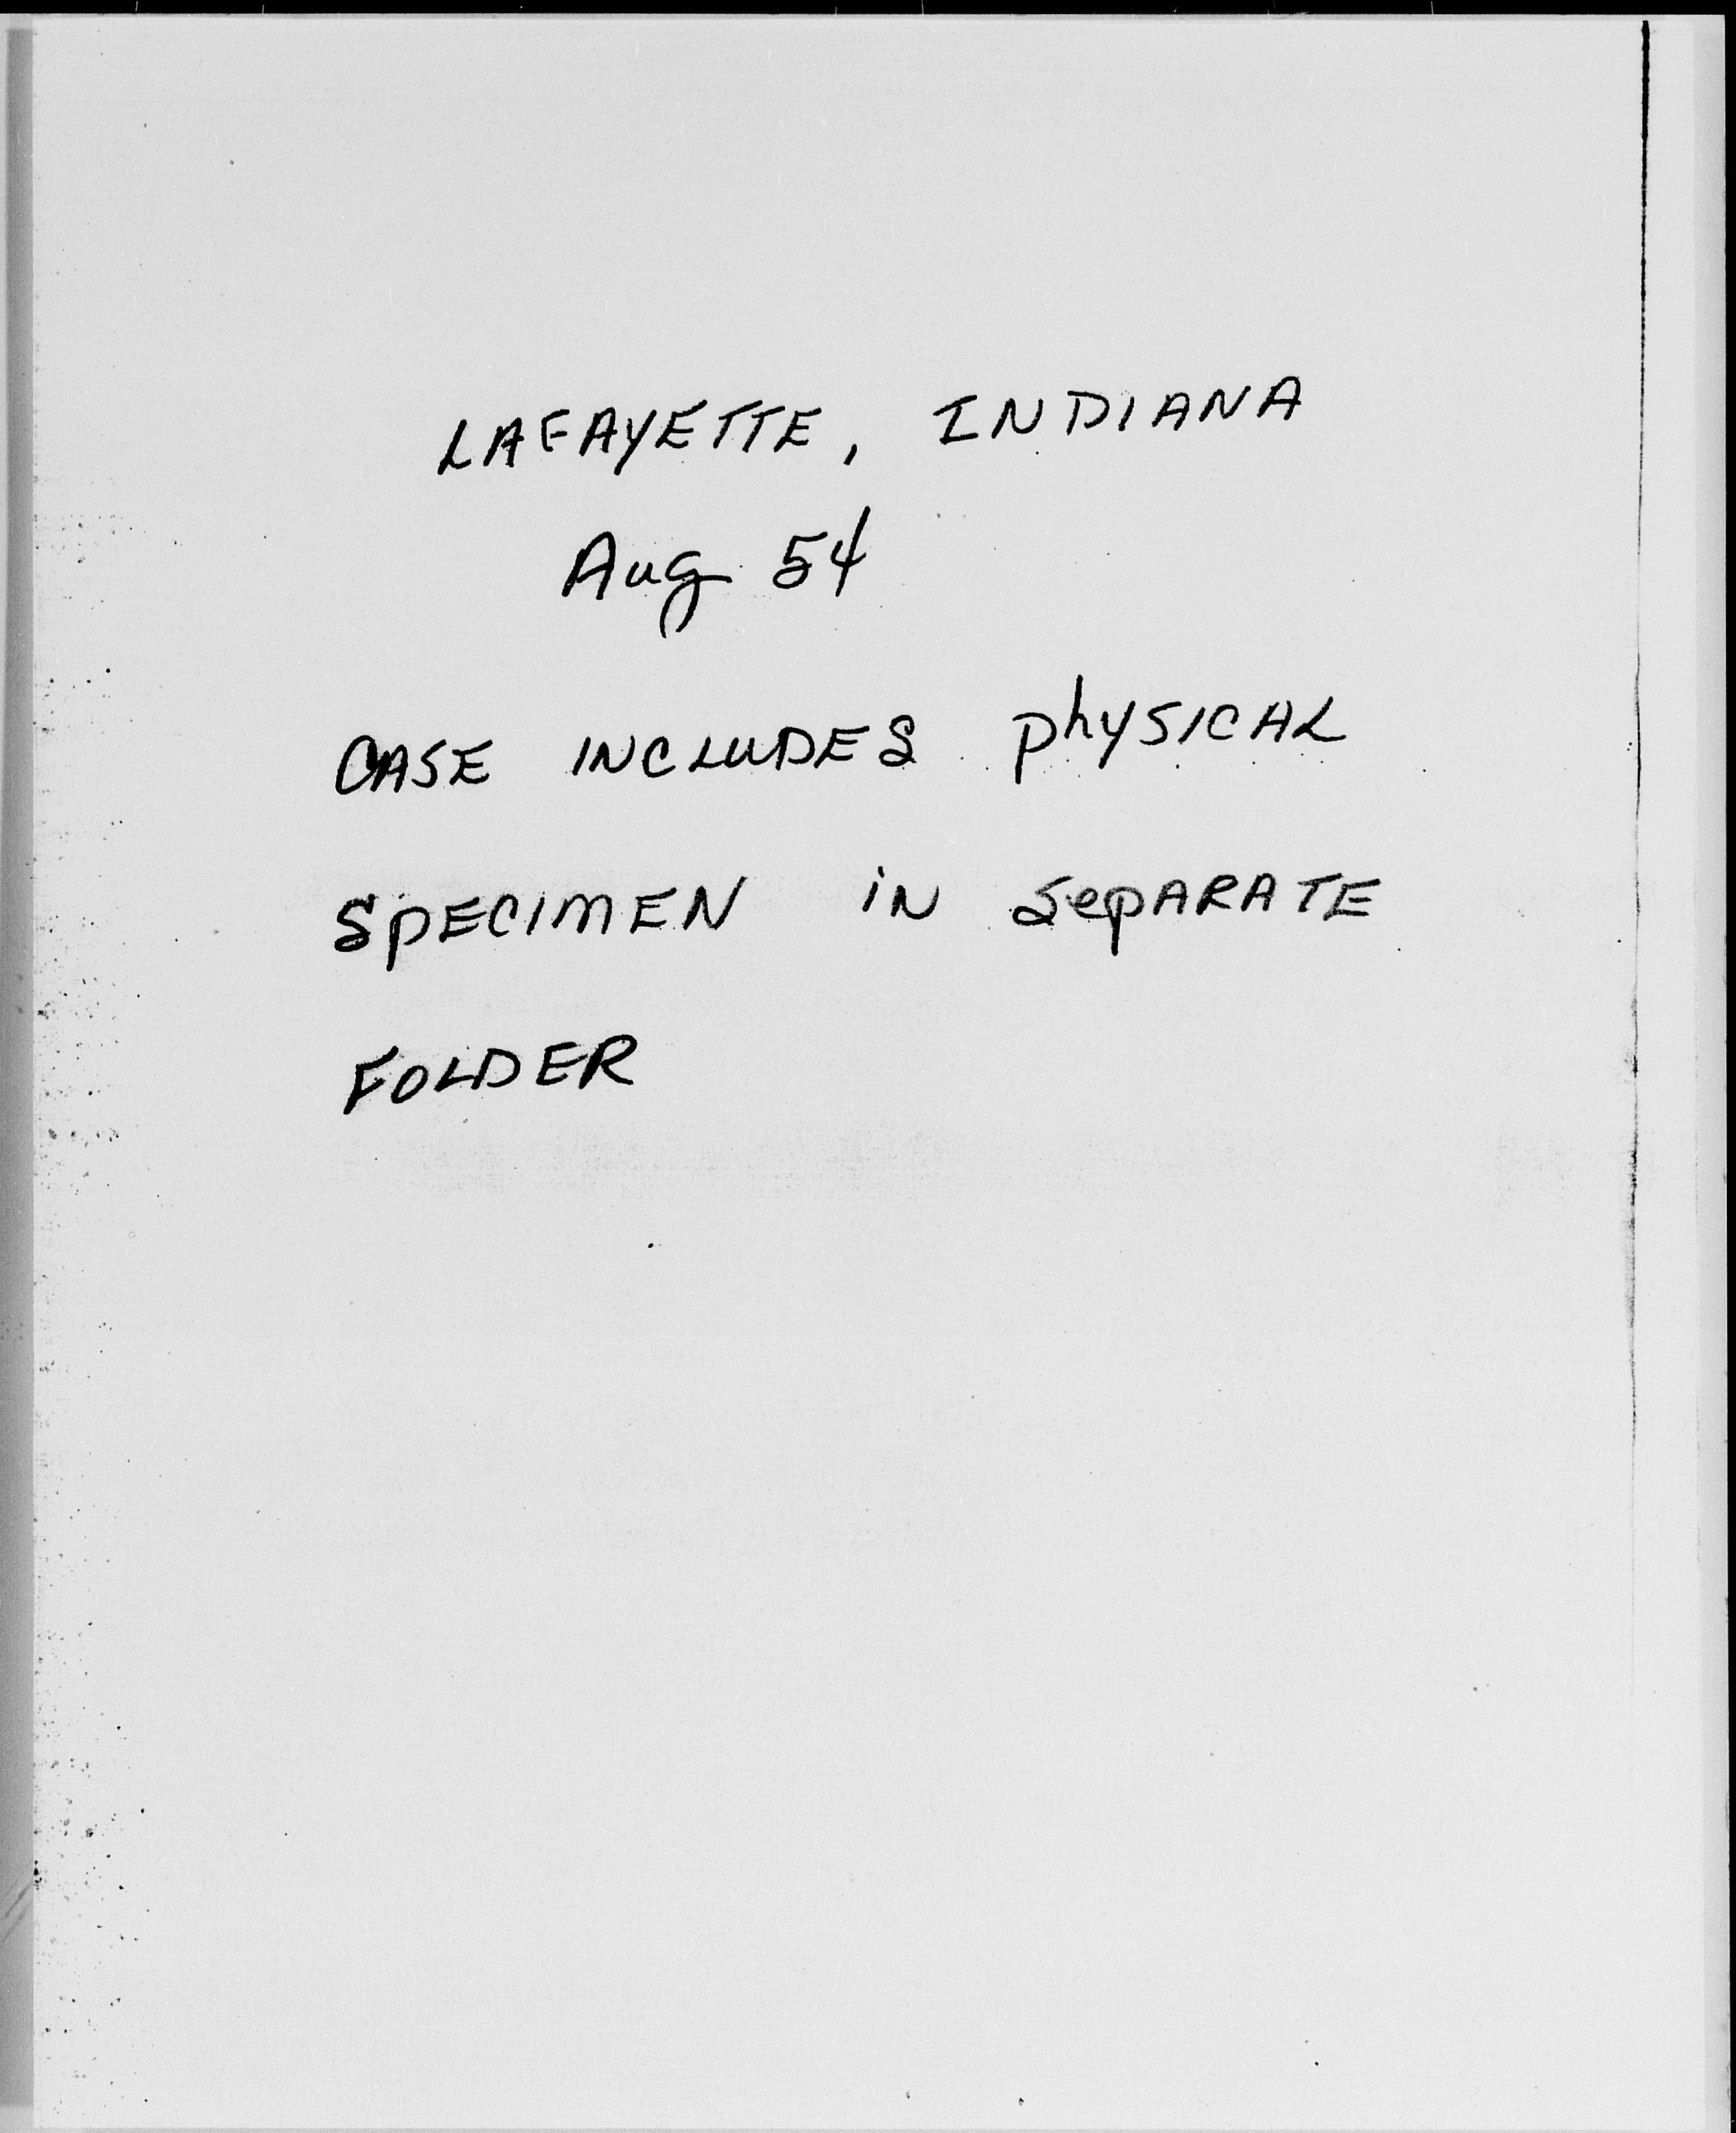 LAFAYETTE, INDIANA
Aug 54
CASE INCLUDES physICAL
SPECIMEN iN SepARATE
FOLDER